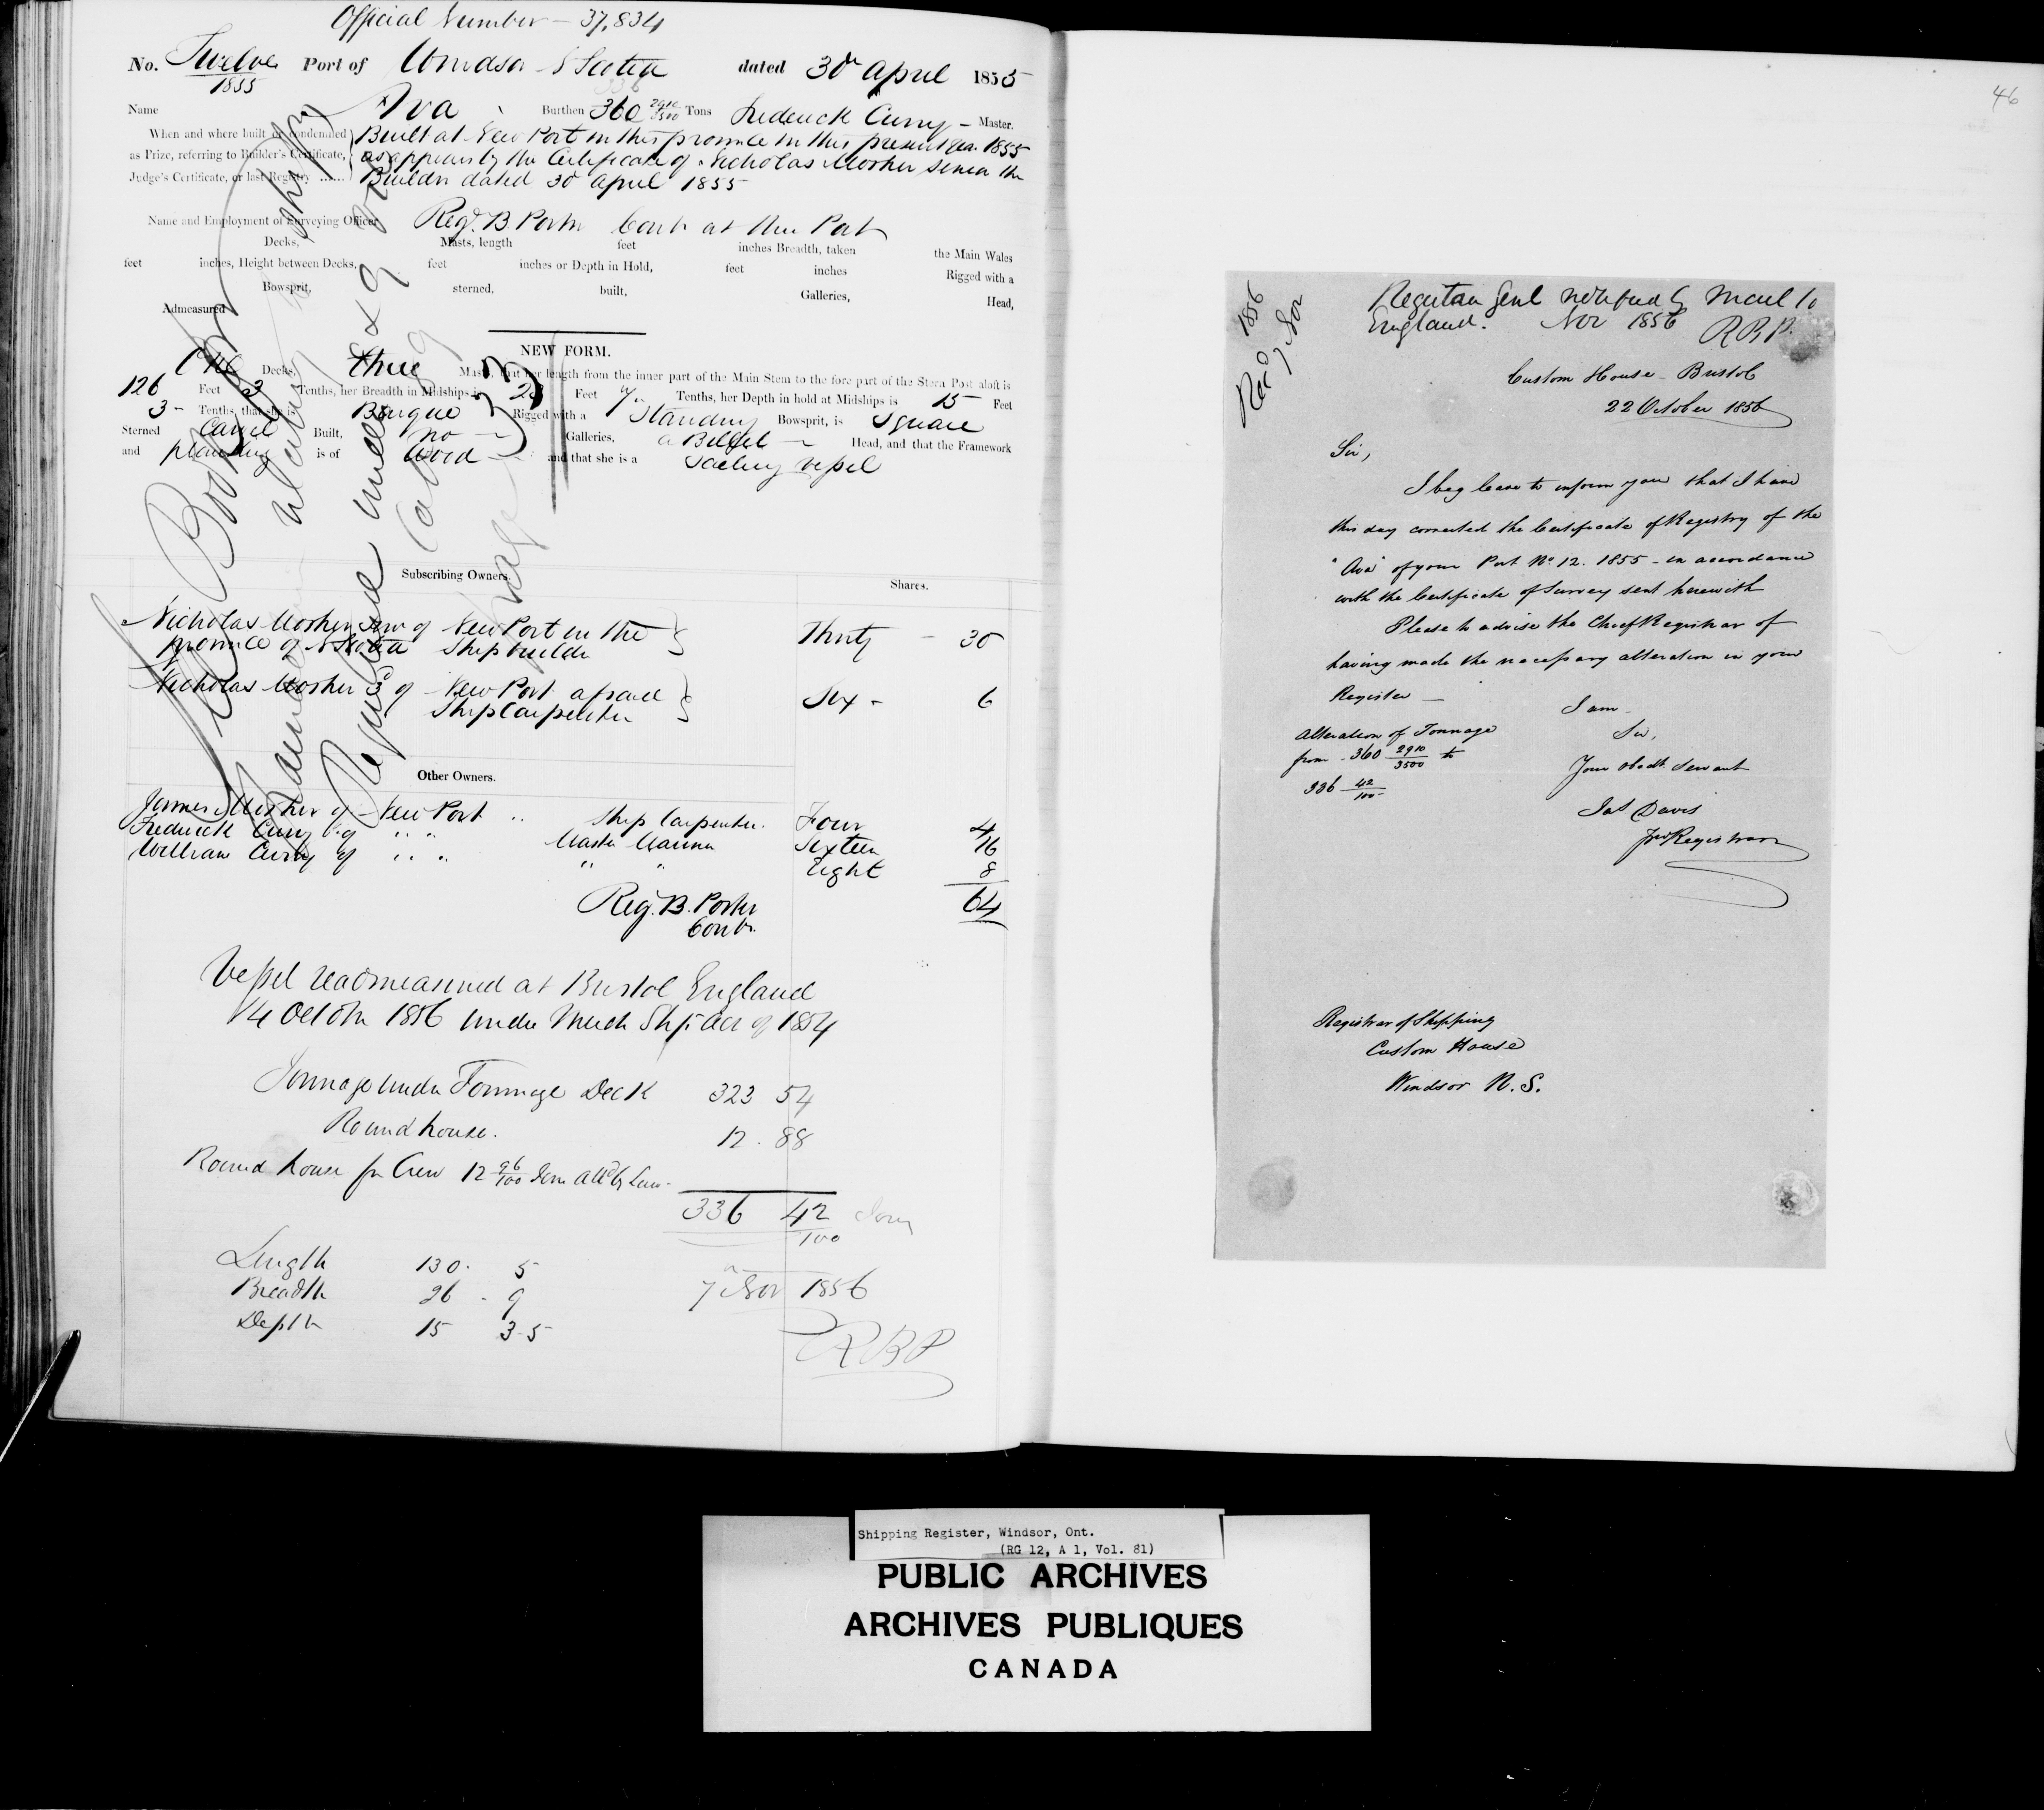 Official Number — 37,834
No. Twelve Port of Windsor N Scotia dated 30th April 1855
1855
336
Name Ava Burthen 360 2910/3500 Tons Frederick Curry — Master.
When and where built or condemned Built at New Port in this province in this present year 1855
as Prize, referring to Builder's Certificate, as appears by the Certificate of Nicholas Mosher Senior the
Judge's Certificate, or last Registry ...... Builder dated 30 April 1855
Name and Employment of Surveying Officer Reg. B. Porter Contr at this Port
Decks, Masts, length feet inches Breadth, taken the Main Wales
feet inches, Height between Decks, feet inches or Depth in Hold, feet inches Rigged with a
Bowsprit, sterned, built, Galleries, Head,
Admeasured
NEW FORM.
One Decks, three Masts, that her length from the inner part of the Main Stem to the fore part of the Stern Post aloft is
126 Feet 2 Tenths, her Breadth in Midships is Feet 7 Tenths, her Depth in hold at Midships is 15 Feet
3 - Tenths, that she is Barque Rigged with a Standing Bowsprit, is Square
Sterned Carvel Built, no — Galleries, a Billet — Head, and that the Framework
and planking is of Wood — and that she is a Sailing vessel
Subscribing Owners. Shares.
Nicholas Mosher Senr of New Port in the
province of N Scotia Ship builder Thirty — 30
Nicholas Mosher 3d of New Port aforesaid
Ship Carpenter Six - 6
Other Owners.
James Mosher of New Port " Ship Carpenter. Four 4
Frederick Curry of " " Master Mariner Sixteen 16
William Curry of " " " " Eight 8
Reg. B. Porter 64
Contr.
Vessel readmeasured at Bristol England
14 October 1856 under Merch Shp: Act of 1854
Tonnage under Tonnage Deck 323 54
Round house. 12 . 88
Round house for Crew 12 96/100 Tons by Law.
336 42/100 Tons
Length 130. 5
Breadth 26 . 9
Depth 15 3.5
7 Nov 1856
RBP
46
1856
Rec 7 Nov
Registrar Genl notified by Mail to
England. Nov 1856 RBP.
Custom House - Bristol
22 October 1856
Sir,
I beg leave to inform you that I have
this day corrected the Certificate of Registry of the
"Ava" of your Port No. 12. 1855 - in accordance
with the Certificate of Survey sent herewith
Please to advise the Chief Registrar of
having made the necessary alteration in your
Register —
I am
Alteration of Tonnage
Sir,
from 360 2910/3500 to
Your obedt Servant
336 42/100
Jas Davis
Registrar
Registrar of Shipping
Custom House
Windsor N. S.
Shipping Register, Windsor, Ont.
(RG 12, A 1, Vol. 81)
PUBLIC ARCHIVES
ARCHIVES PUBLIQUES
CANADA